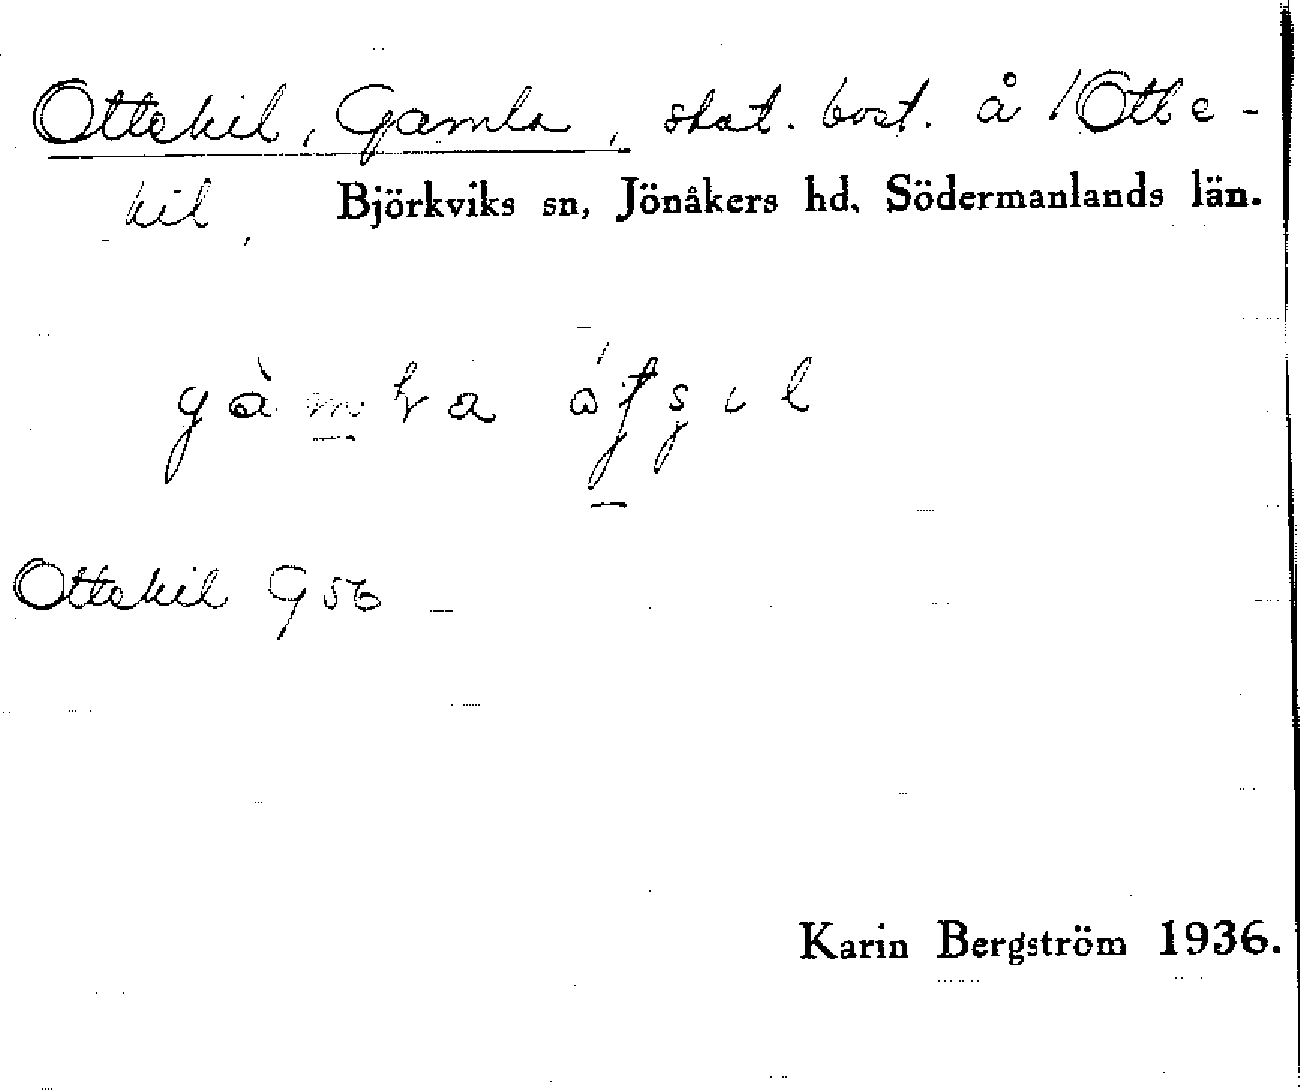 Ottekil, Gamla, stat. bost. å 1 Otte-
kil, Björkviks sn, Jönåkers hd, Södermanlands län.
Ottekil G 56
Karin Bergström 1936.